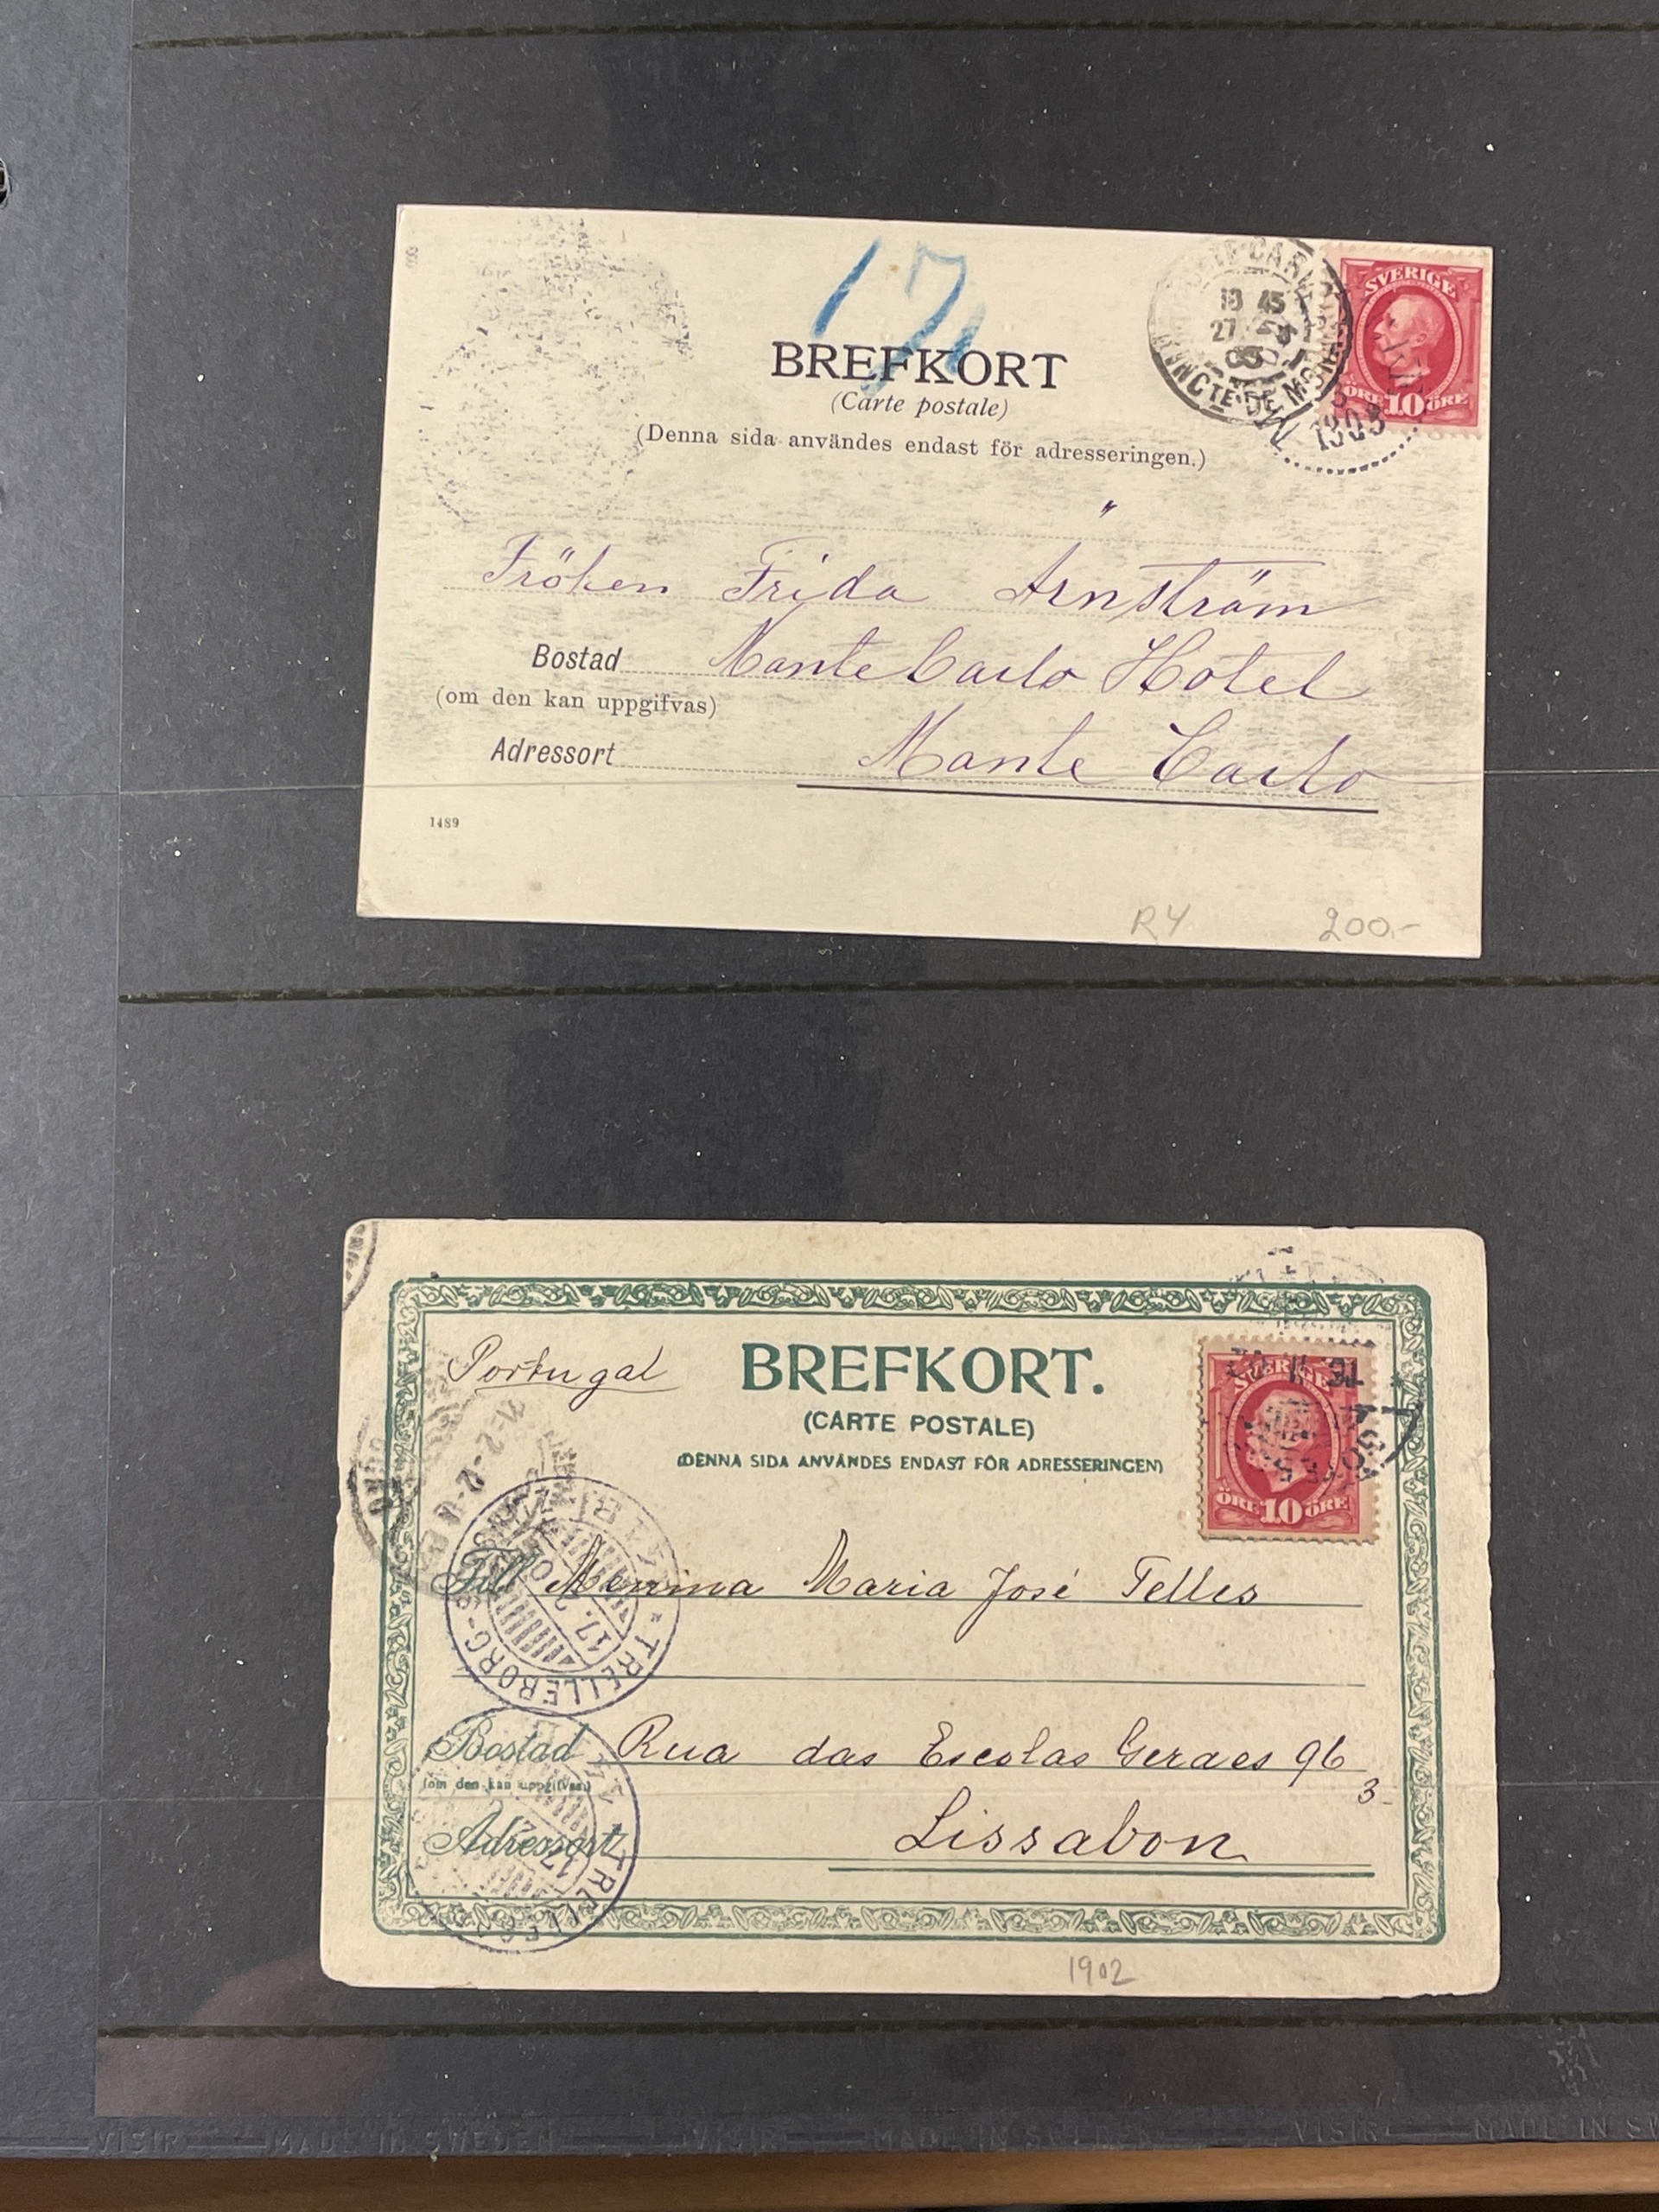 17
SVERIGE
18 45
27
03
ÖRE 10 ÖRE
1903
BREFKORT
(Carte postale)
(Denna sida användes endast för adresseringen.)
Fröken Frida Arnström
Bostad Monte Carlo Hotel
(om den kan uppgifvas)
Adressort Monte Carlo
1489
R4 200.-
Portugal
BREFKORT.
(CARTE POSTALE)
(DENNA SIDA ANVÄNDES ENDAST FÖR ADRESSERINGEN)
SVERIGE
ÖRE 10 ÖRE
Till Menina Maria José Telles
TRELLEBORG
17.
Bostad Rua das Escolas Geraes 96
(om den kan uppgifvas)
3-
Adressort Lissabon
1902
VISIR MADE IN SWEDEN VISIR MADE IN SWEDEN VISIR MADE IN SW